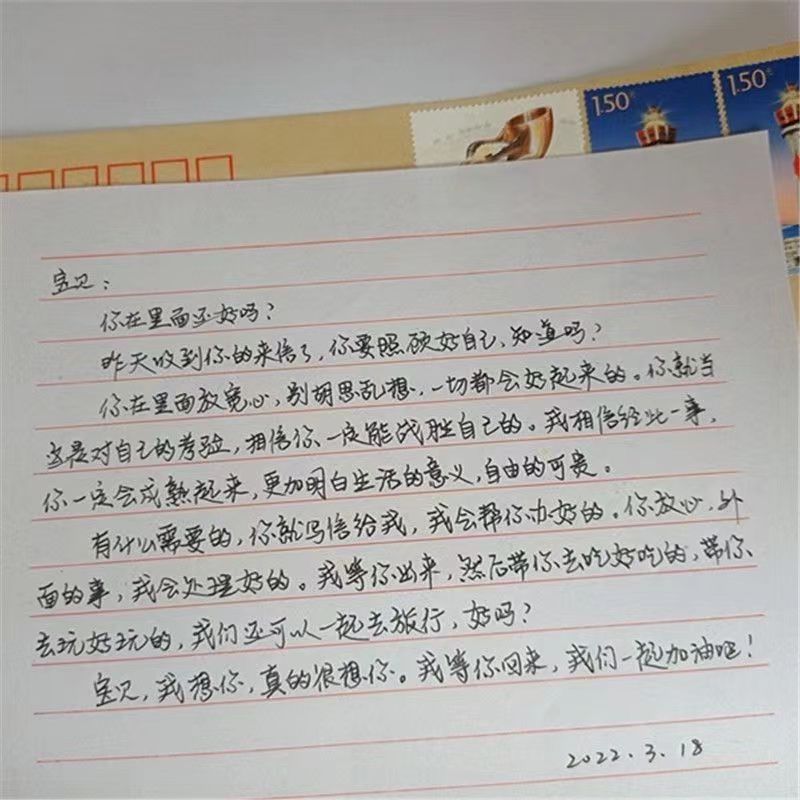 1.50元
1.50元
宝贝:
你在里面还好吗?
昨天收到你的来信了,你要照顾好自己,知道吗?
你在里面放宽心,别胡思乱想,一切都会好起来的。你就当
这是对自己的考验,相信你一定能战胜自己的。我相信经此一事,
你一定会成熟起来,更加明白生活的意义,自由的可贵。
有什么需要的,你就写信给我,我会帮你办好的。你放心,外
面的事,我会处理好的。我等你出来,然后带你去吃好吃的,带你
去玩好玩的,我们还可以一起去旅行,好吗?
宝贝,我想你,真的很想你。我等你回来,我们一起加油吧!
2022.3.18